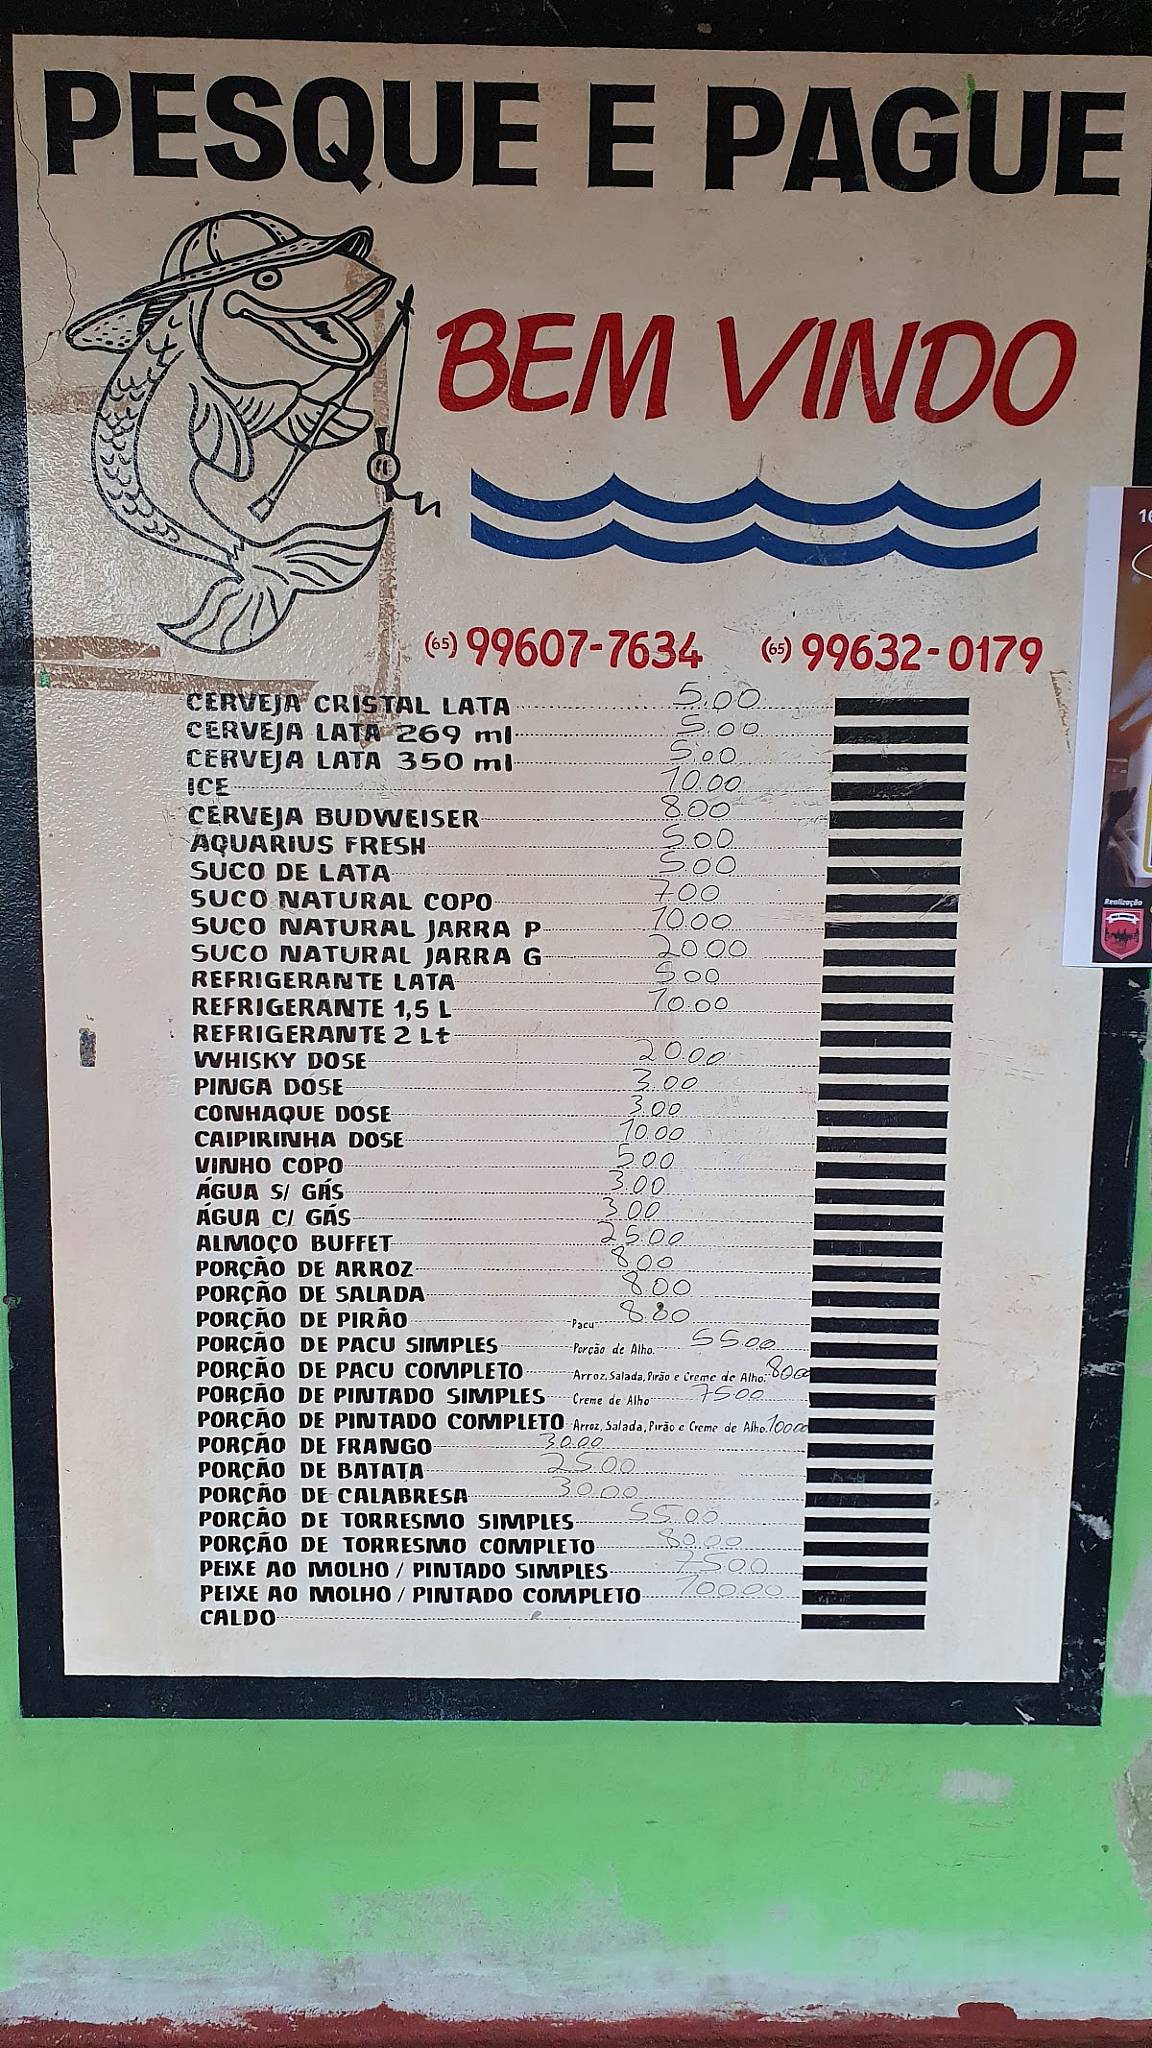 PESQUE E PAGUE
BEM VINDO
(65) 99607-7634 (65) 99632-0179
CERVEJA CRISTAL LATA 5.00
CERVEJA LATA 269 ml 5.00
CERVEJA LATA 350 ml 5.00
ICE 10.00
CERVEJA BUDWEISER 8.00
AQUARIUS FRESH 5.00
SUCO DE LATA 5.00
SUCO NATURAL COPO 7.00
SUCO NATURAL JARRA P 10.00
SUCO NATURAL JARRA G 20.00
REFRIGERANTE LATA 5.00
REFRIGERANTE 1,5 L 10.00
REFRIGERANTE 2 Lt
WHISKY DOSE 20.00
PINGA DOSE 3.00
CONHAQUE DOSE 3.00
CAIPIRINHA DOSE 10.00
VINHO COPO 5.00
ÁGUA S/ GÁS 3.00
ÁGUA C/ GÁS 3.00
ALMOÇO BUFFET 25.00
PORÇÃO DE ARROZ 8.00
PORÇÃO DE SALADA 8.00
PORÇÃO DE PIRÃO Pacu 8.00
PORÇÃO DE PACU SIMPLES Porção de Alho. 55.00
PORÇÃO DE PACU COMPLETO Arroz, Salada, Pirão e Creme de Alho. 80.00
PORÇÃO DE PINTADO SIMPLES Creme de Alho 75.00
PORÇÃO DE PINTADO COMPLETO Arroz, Salada, Pirão e Creme de Alho. 100.00
PORÇÃO DE FRANGO 30.00
PORÇÃO DE BATATA 25.00
PORÇÃO DE CALABRESA 30.00
PORÇÃO DE TORRESMO SIMPLES 55.00
PORÇÃO DE TORRESMO COMPLETO 80.00
PEIXE AO MOLHO / PINTADO SIMPLES 75.00
PEIXE AO MOLHO / PINTADO COMPLETO 100.00
CALDO
16
Realização